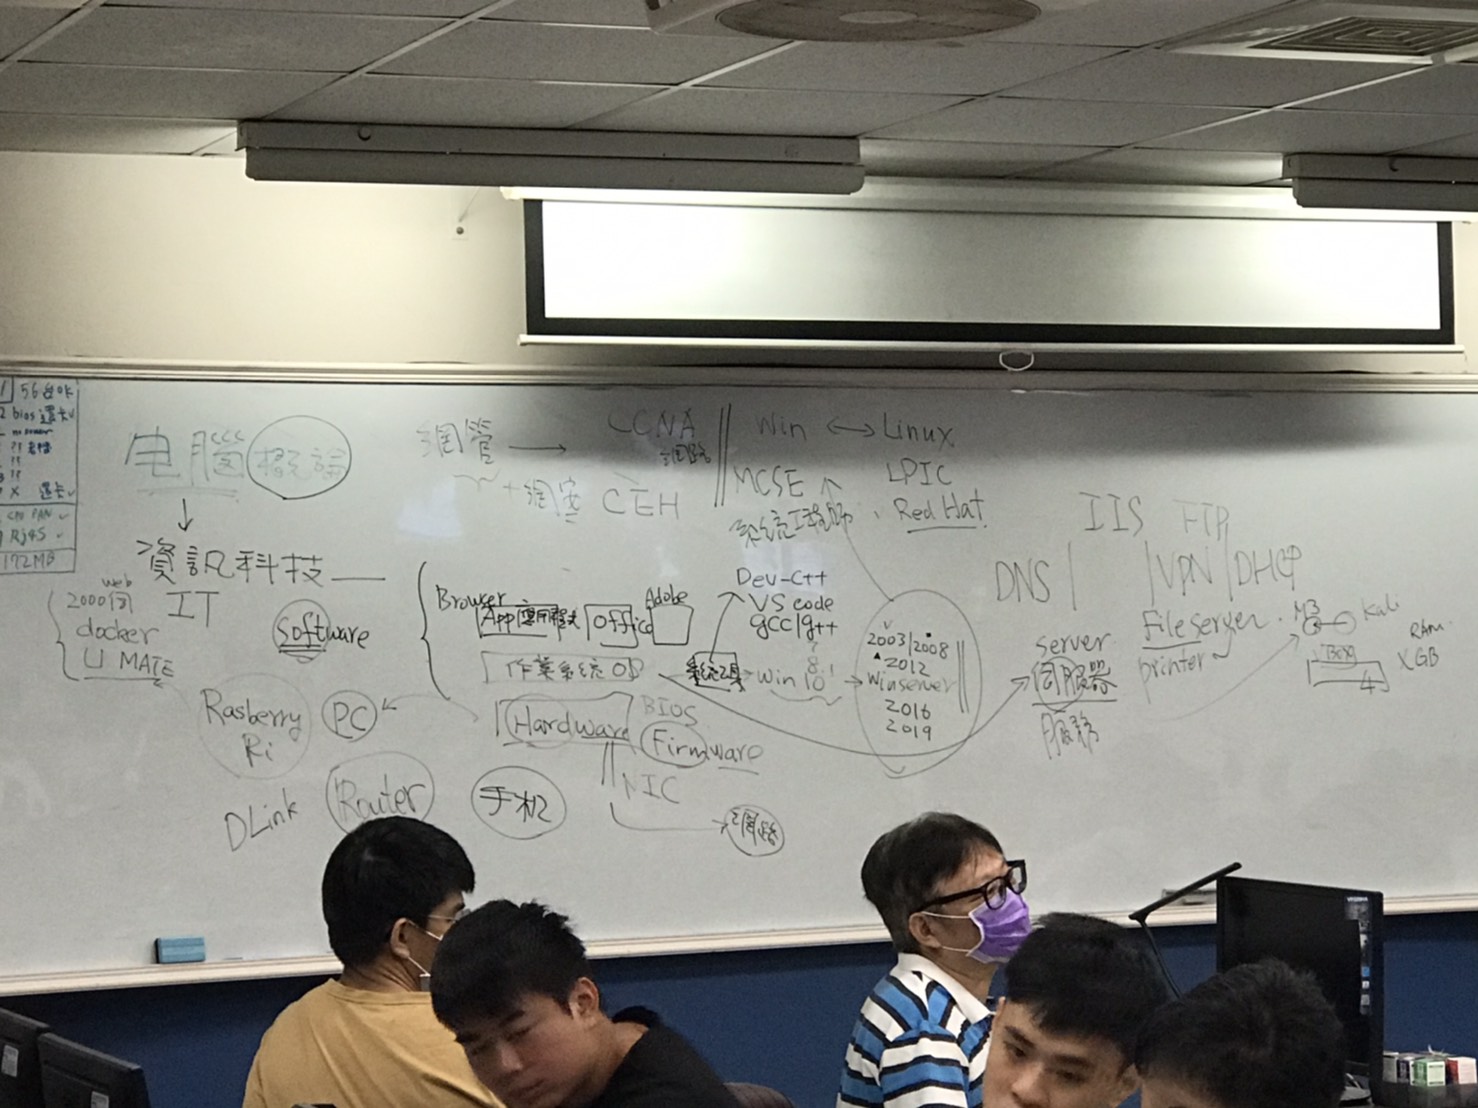 56台OK
bios 還卡✓
?? 老檔
??
X 還卡✓
Rj45 ✓
172MB
电腦概論
↓
資訊科技
IT
web
2000個
docker
U MATE
Software
Rasberry
Ri
PC
DLink
Router
手机
網管 → CCNA
網路
+ 網安 CEH
Win ↔ Linux
MCSE
系統工程師
LPIC
Red Hat
Browser
App 應用程式
Office
Adobe
作業系統 OS
Hardware
BIOS
Firmware
NIC
網路
系統工具
Dev-C++
VS code
gcc/g++
7
8.1
win 10
2003/2008
2012
winserver
2016
2019
IIS FTP
DNS | | VPN | DHCP
server
伺服器
服務
File server
printer
M3
Kali
VBox
4
RAM
XGB